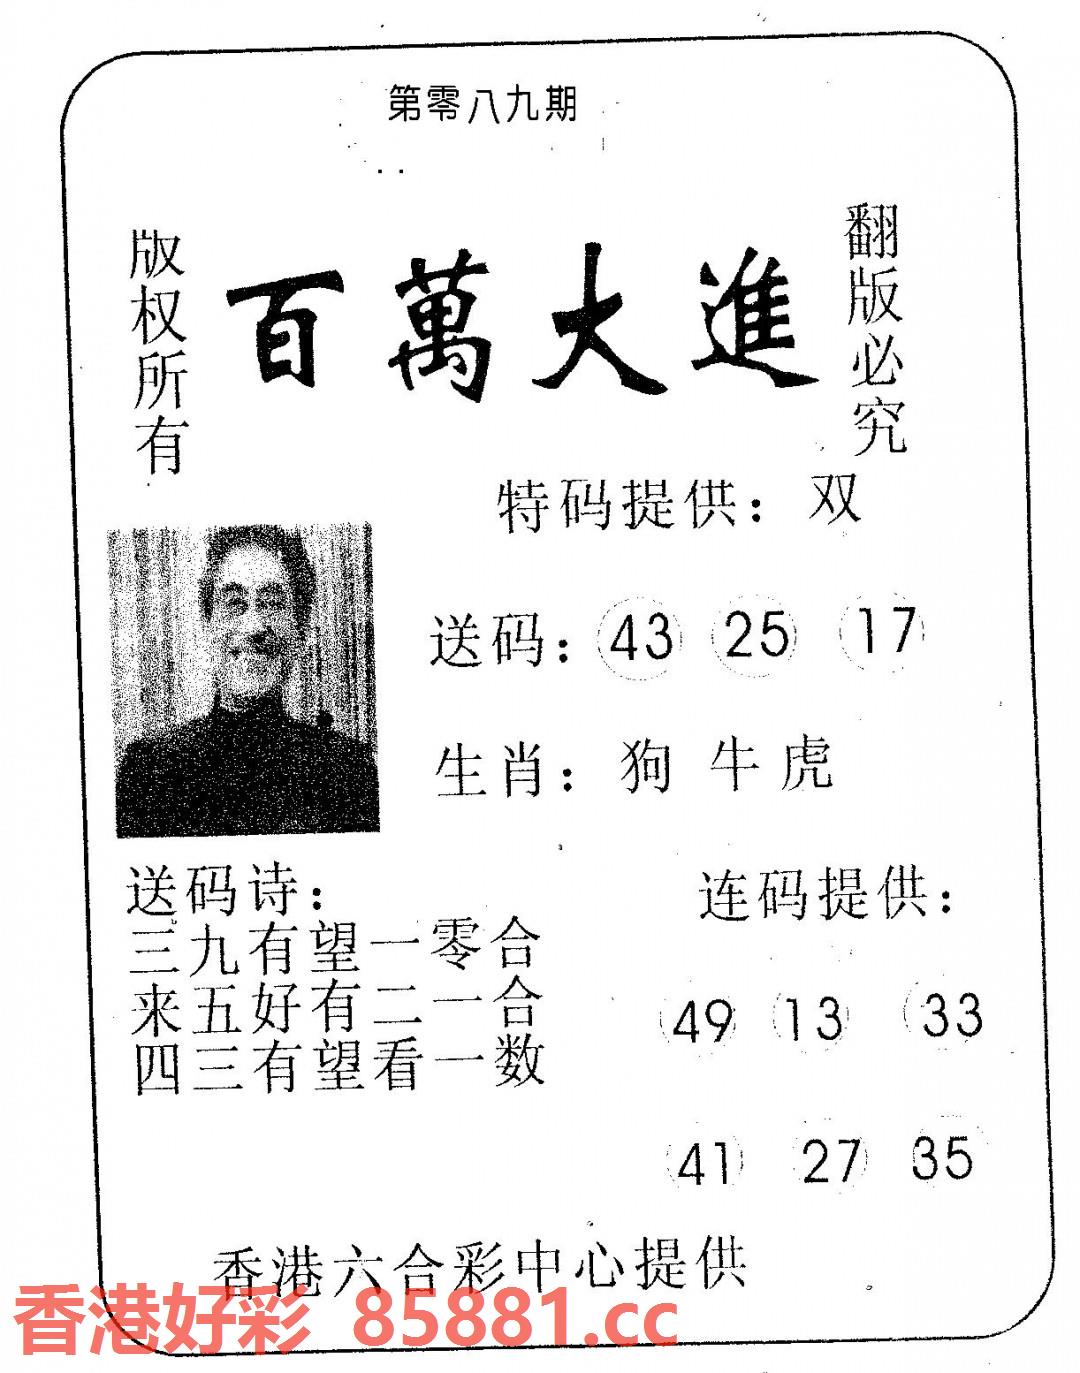 第零八九期
版权所有
百萬大進
翻版必究
特码提供：双
送码：43 25 17
生肖：狗 牛 虎
送码诗：
三九有望一零合
来五好有二一合
四三有望看一数
连码提供：
49 13 33
41 27 35
香港六合彩中心提供
香港好彩 85881.cc